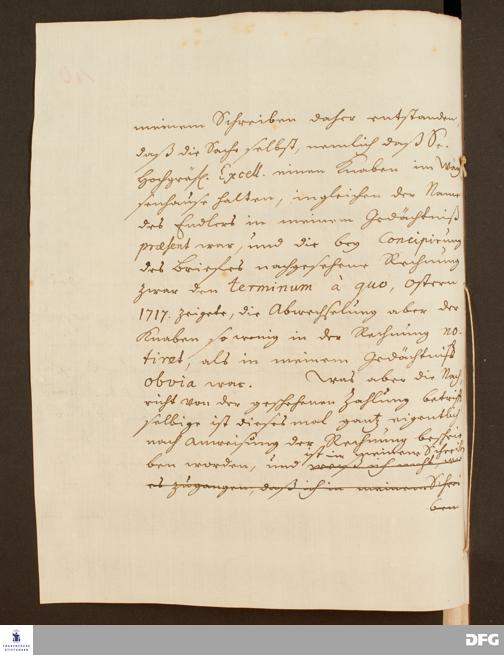 meinem Schreiben daher entstanden,
daß die Sache selbst, nemlich daß Se.
Hochgräfl. Excell. einen Knaben im Way
senhause halten, ingleichen der Name
des Endlers in meinem Gedächtniß
præsent war, und die bey Concipirung
des Briefes nachgesehene Rechnung
zwar den terminum à quo, Ostern
1717. zeigete, die Abwechselung aber der
Knaben so wenig in der Rechnung no-
tiret, als in meinem Gedächtniß
obvia war. Was aber die Nach
richt von der geschehenen Zahlung betrifft
selbige ist dieses mal gantz eigentlich
nach Anweisung der Rechnung beschrie
ist in meinem Schreiben
ben worden, und weiß ich nicht, wie
es zugangen, daß ich in meinem Schrei
ben
FRANCKESCHE
STIFTUNGEN
DFG